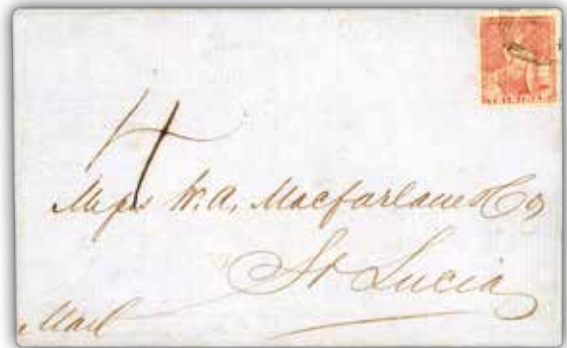 4
Mess W. A. Macfarlane & Co
St Lucia
Mail